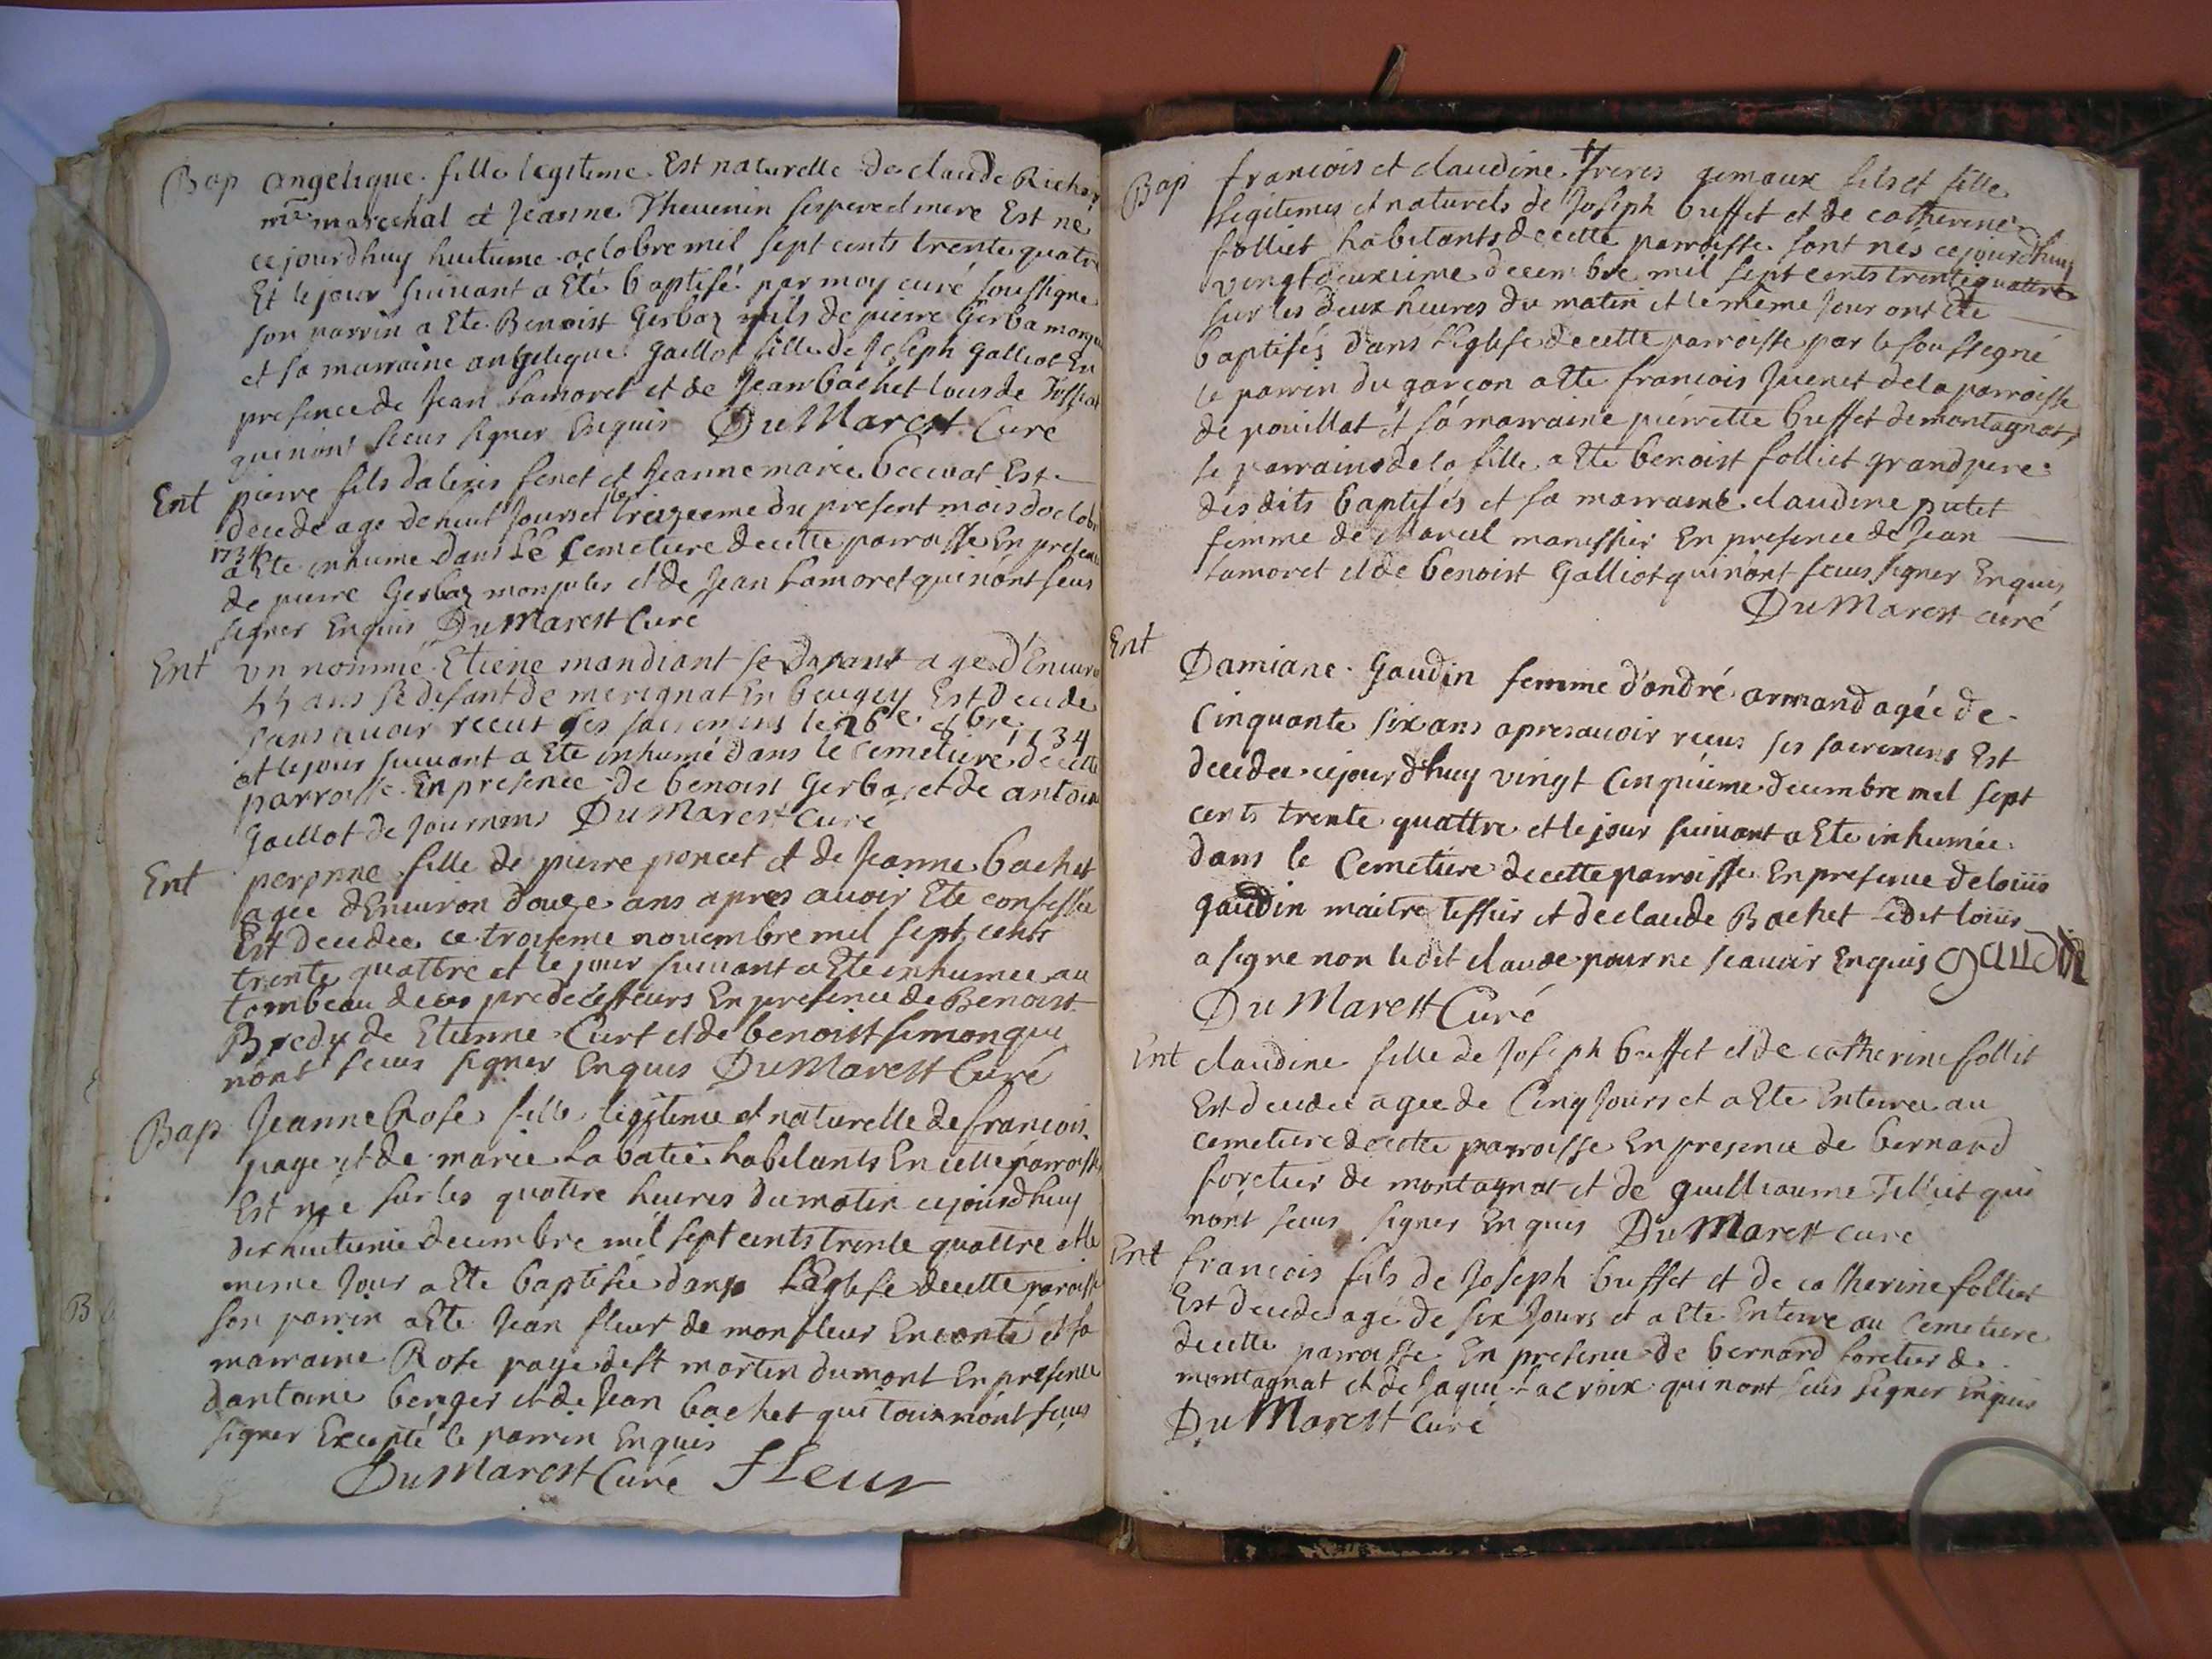 Bap Angelique fille legitime Est naturelle de claude Richar
mre marechal et Jeanne Thevenin ses pere et mere Est né
cejourdhuy huitieme octobre mil sept cents trente quatre
Et le jour suivant a Eté baptisé par moy curé soussigne
son parrin a Ete Benoist Gerbaz fils de pierre Gerba
et sa marraine angelique gaillot fille de Joseph Galliot En
presence de Jean Lamoret et de Jean bachet tous de
qui nont sceus signer Enquis DuMarest Curé
Ent pierre fils dalexis fenet et Jeanne marie Est
decede age de huit Jours et le treizeeme du present mois doctobr
1734 a Ete inhume dans Le Cemetiere de cette parroisse En presence
de pierre Gerbaz et de Jean Lamoret qui nont seus
signer Enquis DuMarest Curé
Ent un nommé Etiene mandiant age d'Enviro
ans se disant de merignat En beugey Est decede
sans avoir receut ses sacremens le 26e 8bre 1734
et le jour suivant a Ete inhumé dans le cemetiere de cette
parroisse En presence de benoist Gerbaz et de antoin
Gaillot de Journans DuMarest Curé
Ent peronne fille de pierre poncet et de Jeanne bachet
agee dEnviron douze ans apres avoir Ete confessée
Est decedee ce troisieme novembre mil sept cents
trente quattre et le jour suivant a Ete inhumee au
tombeau de ses predecesseurs En presence de Benoist
de Etienne Curt et de benoist simon qui
nont sceus signer Enquis DuMarest Curé
Bap Jeanne Rose fille legitime et naturelle de francois
page et de marie Labatie habitants En cette parroisse
Est née sur les quattre heures du matin cejourdhuy
dix huitieme decembre mil sept cents trente quattre et le
meme Jour a Ete baptisée dans LEglise de cette paroisse
son parrin a Ete Jean fleur de monfleur En conté et sa
marraine Rose page de st martin dumont En presence
dantoine berger et de Jean bachet qui tous nont sceus
signer Excepté le parrin Enquis
DuMarest Curé Fleur
Bap francois et claudine freres gemaux fils et fille
legitimes et naturels de Joseph buffet et de catherine
folliet habitants de cette parroisse sont nés cejourdhuy
vingt deuxieme decembre mil sept cents trente quattre
sur les deux heures du matin et le même Jour ont Ete
baptisés dans LEglise de cette parroisse par le soussigné
le parrin du garcon a Ete francois Juenet de la parroisse
de pouillat et sa marraine pierrette buffet de montagnat,
le parrain de la fille a Ete benoist folliet grand pere
des dits baptisés et sa marraine claudine putet
femme de Marcel manissier En presence de Jean
Lamoret et de benoist Galliot qui nont sceus signer Enquis
DuMarest curé
Ent
Damiane Gaudin femme d'andré armand agée de
Cinquante six ans apres avoir receus ses sacremens Est
decedee cejourdhuy vingt Cinquieme decembre mil sept
cents trente quattre et le jour suivant a Ete inhumée
dans le Cemetiere de cette parroisse En presence de loüis
gaudin maitre tissier et de claude Bachet ledit loüis
a signe non ledit claude pour ne scavoir Enquis gaudin
DuMarest Curé
Ent claudine fille de Joseph buffet et de catherine folliet
Est decedee agee de Cinq Jours et a Ete Enterree au
cemetiere de cette parroisse En presence de bernard
foretier de montagnat et de guilliaume Tilliet qui
nont sceus signer Enquis DuMarest curé
Ent francois fils de Joseph buffet et de catherine folliet
Est decede agé de six Jours et a Ete Enterre au Cemetiere
de cette parroisse En presence de bernard foretier de
montagnat et de Jaque Lacroix qui nont sceus signer Enquis
DuMarest Curé